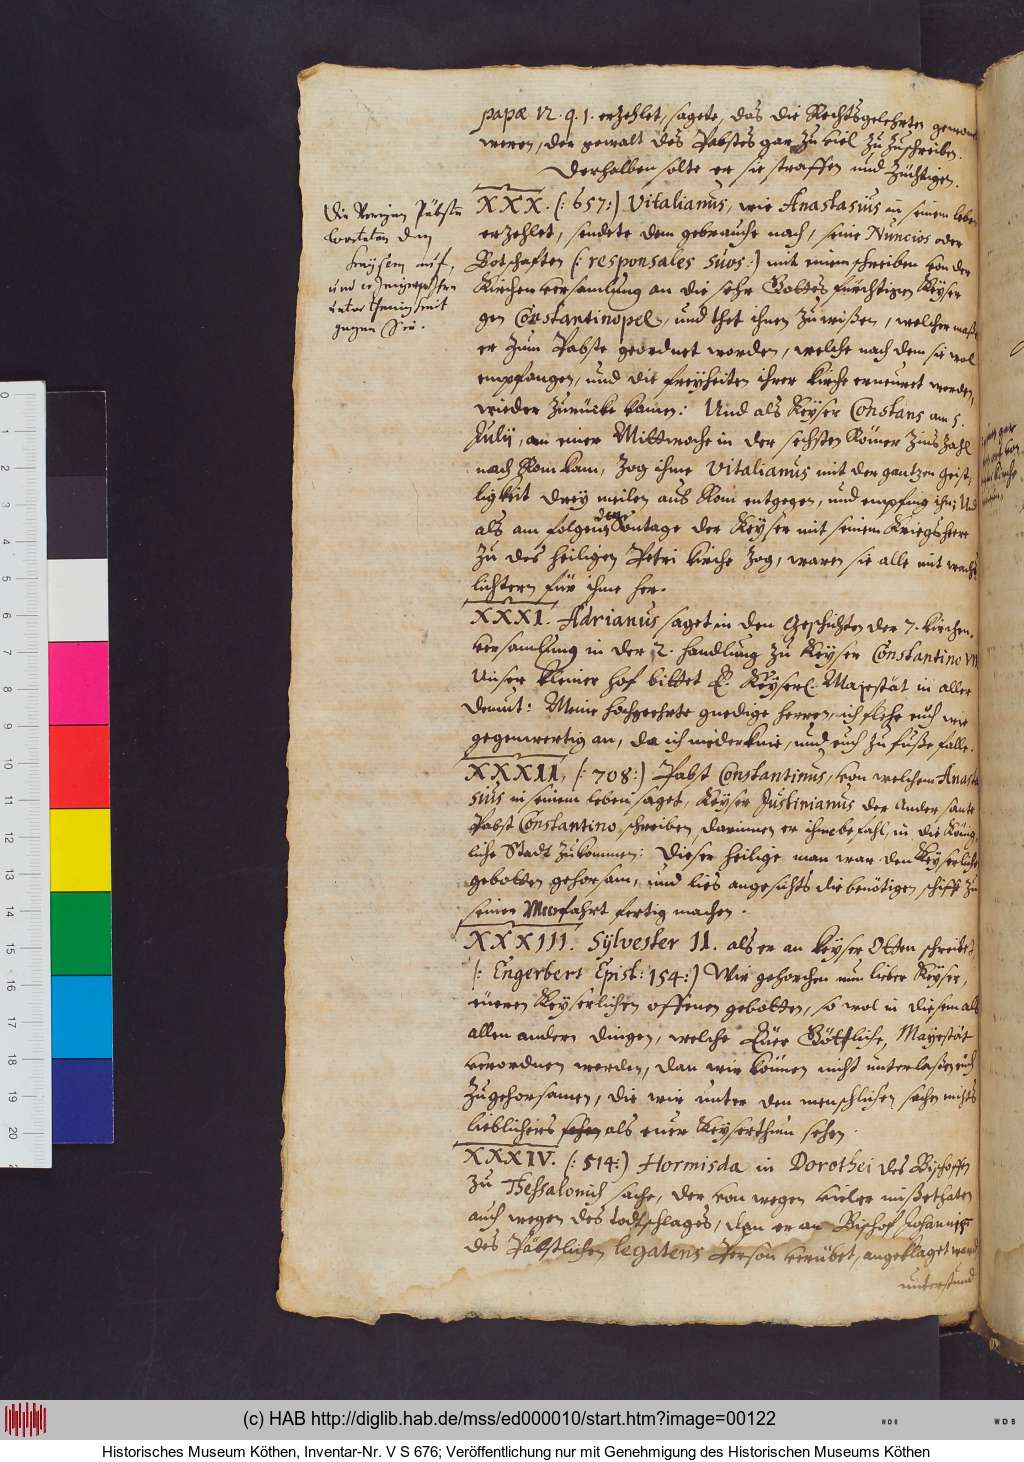 papæ 12. q. 1. erzehlet, sagete, das die Rechtsgelehrten gewonet
weren, der gewalt des Pabstes gar zu viel zu zuschreiben.
Derhalben solte er sie straffen und züchtigen.
Die Vorigen Päbste
leisteten den
Kaysern auf,
und
unterthenigkeit
gegen sie.
XXX. (: 657:) Vitalianus, wie Anastasius in seinem leben
erzehlet, sendete dem gebrauche nach, seine Nuncios oder
Botschaften (: responsales suos:) mit einem schreiben von der
Kirchen versamlung an die sehr Gottes fürchtigen Keyser
gen Constantinopel, und thet ihnen zu wißen, welcher maße
er zum Pabste geordnet worden, welche nach dem sie wol
empfangen, und die freyheiten ihrer kirche erneuret worden,
wieder zurücke kamen: Und als Keyser Constans am 5.
July, an einer Mittwoche in der sechsten Römer Zins Zahl
nach Rom kam, zog ihme Vitalianus mit der gantzen Geist,
ligkeit drey meilen aus Rom entgegen, und empfing ihn; Und
als am folgenden Sontage der Keyser mit seinem Kriegsheere
zu des heiligen Petri kirche zog, waren sie alle mit wachs
lichtern für ihme her.
XXXI. Adrianus saget in den Geschichten der 7. kirchen,
versamlung in der 2. handlung zu Keyser Constantino VII
Unser kleiner hof bittet E. Keyserl. Majestät in aller
demut: Meine hochgeehrte gnedige herren, ich flehe euch wie
gegenwertig an, da ich niederknie, und euch zu fuße falle.
XXXII, (: 708:) Pabst Constantinus, von welchem Anasta
sius in seinem leben saget, Keyser Justinianus der Ander sante
Pabst Constantino schreiben, darinnen er ihme befahl, in die König
liche Stadt zukommen: Dieser heilige man war den Keyserliche
gebotten gehorsam, und lies angesichts die benötigen schiff zu
seiner Meerfahrt fertig machen.
XXXIII. Sylvester II. als er an keyser Otten schreibet
(: Engerbert Epist: 154:) Wir gehorchen nun lieber Keyser,
eueren Keyserlichen offenen gebotten, so wol in diesem als
allen andern dingen, welche Eure Göttliche, Mayestät
verordnen werden, dan wir können nicht unterlaßen euch
zugehorsamen, die wir unter den menschlichen sachen nichts
lieblichers sehen als euer Keyserthum sehen.
XXXIV. (: 514:) Hormisda in Dorothei des Bischoffen
zu Thessalonich sache, der von wegen vieler mißethaten
auch wegen des todtschlages, den er an Bischof Johannis
des Päbstlichen legatens Person verübet, angeklaget ward
unterstund
0
1
2
3
4
5
6
7
8
9
10
11
12
13
14
15
16
17
18
19
20
(c) HAB http://diglib.hab.de/mss/ed000010/start.htm?image=00122
Historisches Museum Köthen, Inventar-Nr. V S 676; Veröffentlichung nur mit Genehmigung des Historischen Museums Köthen